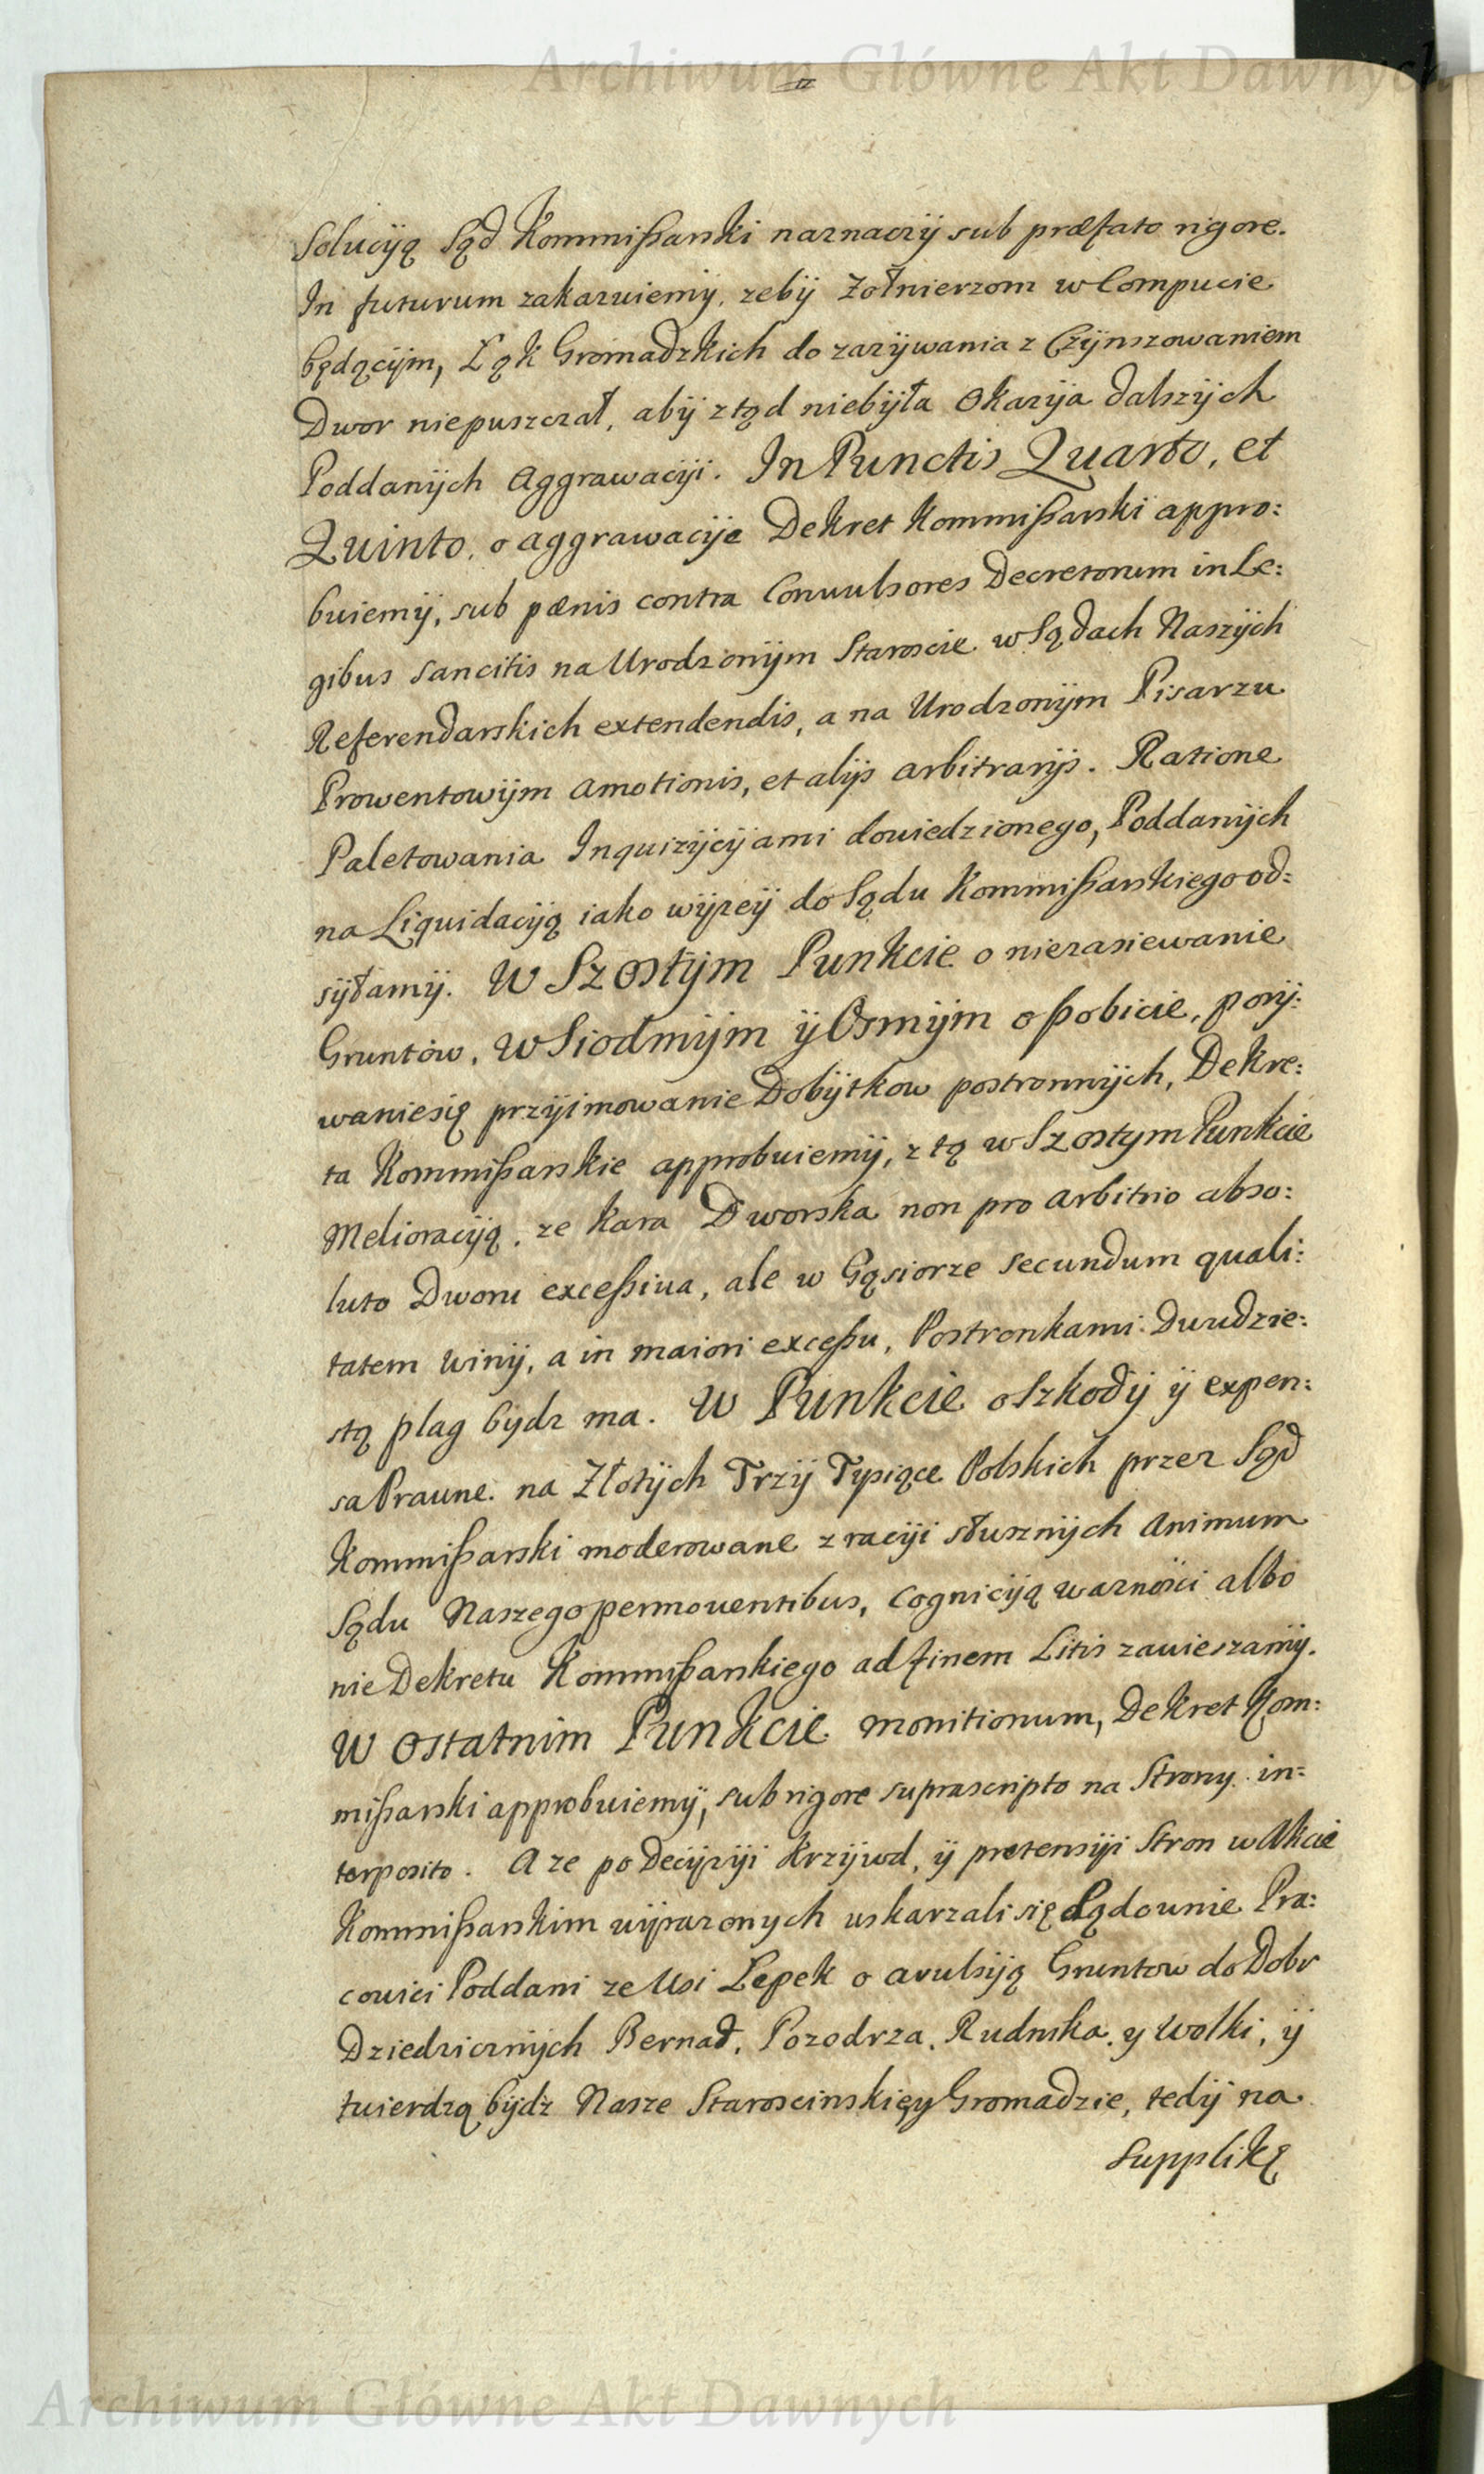 Archiwum Główne Akt Dawnych
Solucyią Sąd Kommißarski naznaczÿ sub præfato rigore.
In futurum zakazuiemÿ, zebÿ Zołnierzom w Compucie
będącÿm, Łąk Gromadzkich do zazÿwania z Czÿnszowaniem
Dwor niepuszczał, abÿ ztąd niebÿła Okazÿa dalszÿch
Poddanÿch Aggrawacÿi. In Punctis Quarto, et
Quinto, o aggrawacÿe Dekret Kommißarski appro:
buiemÿ, sub pœnis contra Convulsores Decretorum in Le:
gibus sancitis na Urodzonÿm Staroscie w Sądach Naszÿch
Referendarskich extendendis, a na Urodzonÿm Pisarzu
Prowentowÿm amotionis, et alÿs arbitrarÿs. Ratione
Paletowania Inquizÿcÿami dowiedzionego, Poddanÿch
na Liquidacÿą iako wÿzeÿ do Sądu Kommißarskiego od:
sÿłamÿ. W Szostÿm Punkcie o niezasiewanie
Gruntów, w Siodmÿm ÿ Osmÿm o pobicie, porÿ:
waniesię przÿimowanie Dobÿtkow postronnÿch, Dekre:
ta Kommißarskie approbuiemÿ, z tą w Szostym Punkcie
Melioracÿą, ze kara Dworska non pro arbitrio abso:
luto Dworu exceßiva, ale w Gąsiorze secundum quali:
tatem winÿ, a in maiori exceßu, Postronkami Dwudzie:
stą plag bÿdz ma. W Punkcie o Szkodÿ ÿ expen:
sa Prawne na Złotÿch Trzÿ Tysiące Polskich przez Sąd
Kommißarski moderowane z racÿi słusznÿch Animum
Sądu Naszego permoventibus, cognicÿą waznósci albo
nie Dekretu Kommißarskiego ad finem Litis zawieszamÿ.
W Ostatnim Punkcie monitionum, Dekret Kom:
mißarski approbuiemÿ, sub rigore suprascripto na Strony in:
terposito. A ze po Decÿzÿi Krzÿwd, ÿ pretensÿi Stron w Akcie
Kommißarskim wÿrazonych uskarzali się Sądownie Pra:
cowici Poddani ze Wsi Łepek o avulsÿą Gruntow do Dobr
Dziedzicznÿch Bernad, Pozodrza, Rudnika, y Wolki, ÿ
twierdzą bÿdz Nasze Staroscinskięy Gromadzie, tedÿ na
Supplikę
Archiwum Główne Akt Dawnych